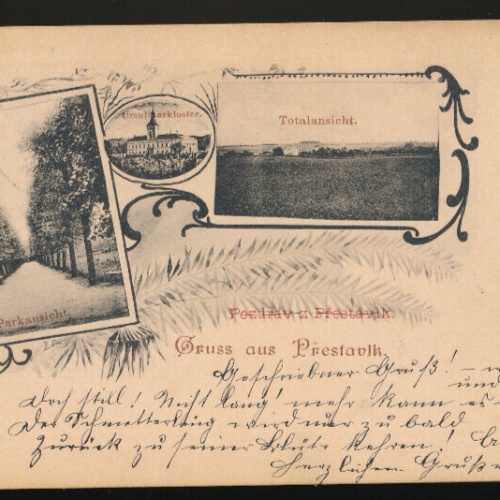 Ursulinerkloster.
Totalansicht.
Parkansicht.
Pozdrav z Přestavlk.
Gruss aus Přestavlk.
Geschriebner Gruß! –
und
Doch still! Nicht lang' mehr kann es
Der Schmetterling wird nur zu bald
Zurück zu seiner Blüte kehren!
herzlichen Gruß